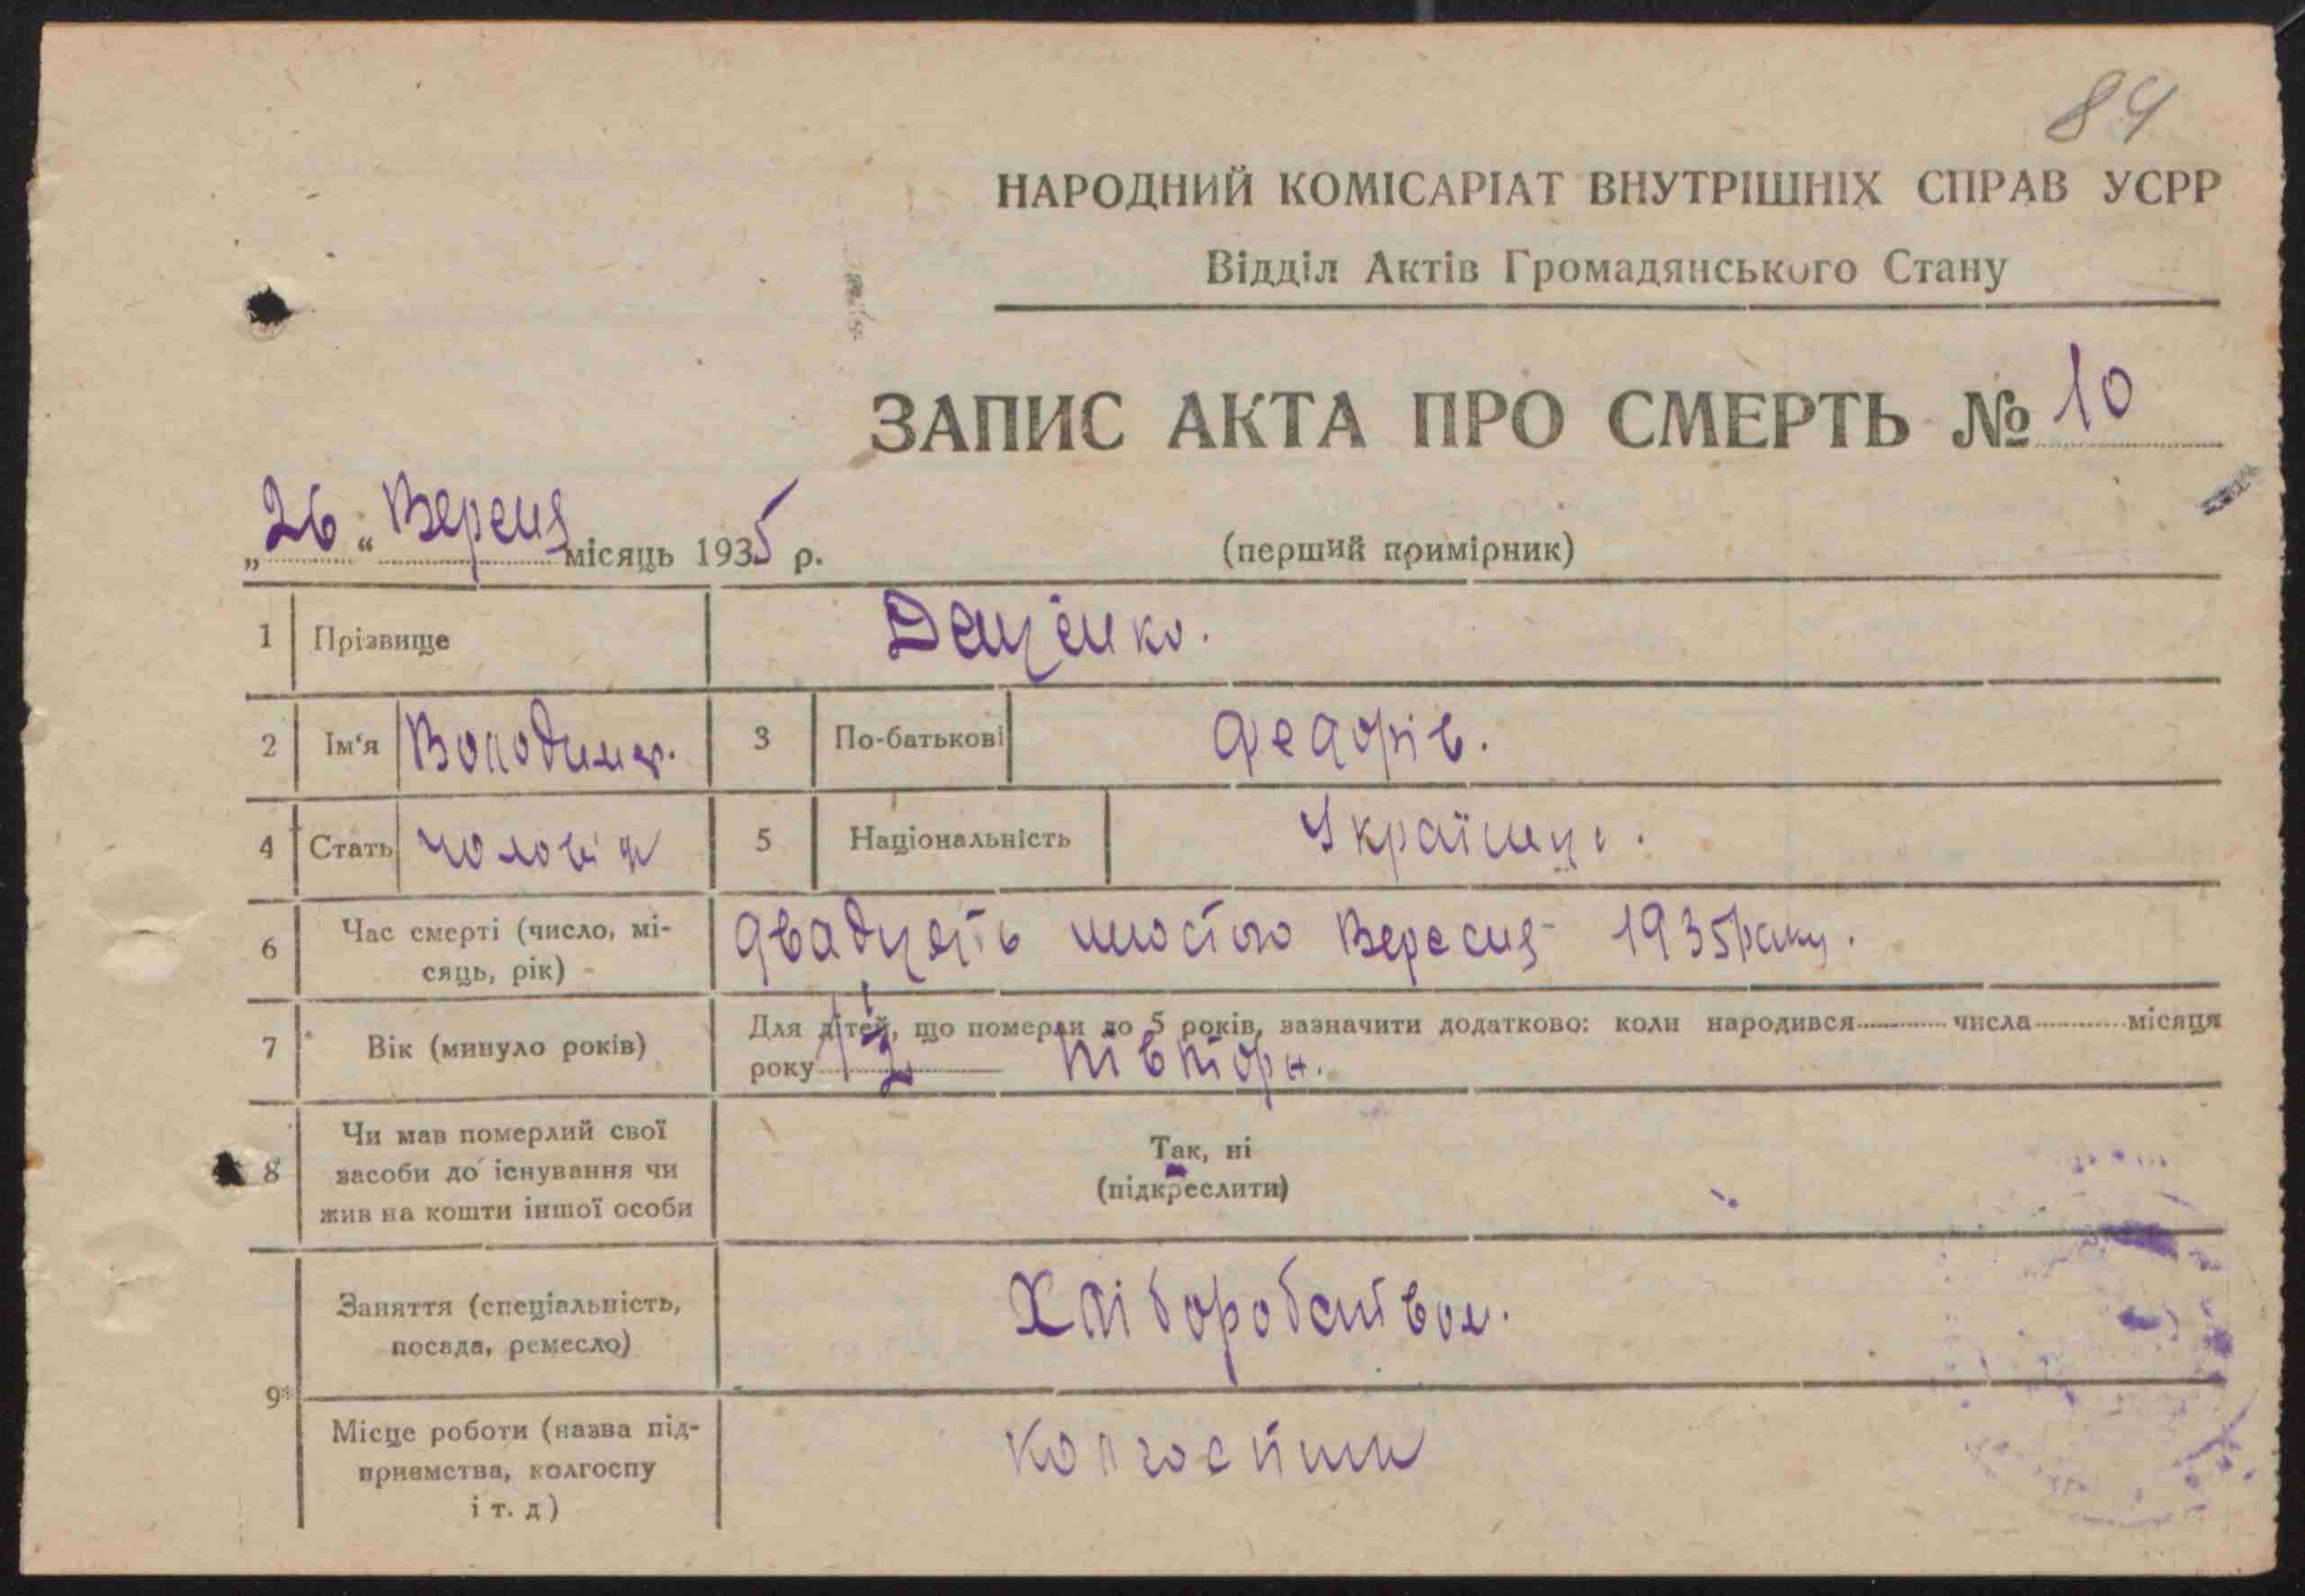 84
НАРОДНИЙ КОМІСАРІАТ ВНУТРІШНІХ СПРАВ УСРР
Відділ Актів Громадянського Стану
ЗАПИС АКТА ПРО СМЕРТЬ № 10
„26“ Вересня місяць 1935 р. (перший примірник)
1 Прізвище Деценко.
2 Ім'я Володимир. 3 По-батькові Федорів.
4 Стать чоловік 5 Національність Українц.
6 Час смерті (число, мі-
сяць, рік)
двадцять шостого Вересня 1935 року.
7 Вік (минуло років)
Для дітей, що померли до 5 років, зазначити додатково: коли народився числа місяця
року 1 1/2 півтора.
8 Чи мав померлий свої
засоби до існування чи
жив на кошти іншої особи
Так, ні
(підкреслити)
9*
Заняття (спеціальність,
посада, ремесло)
Хліборобством.
Місце роботи (назва під-
приємства, колгоспу
і т. д)
колгоспник